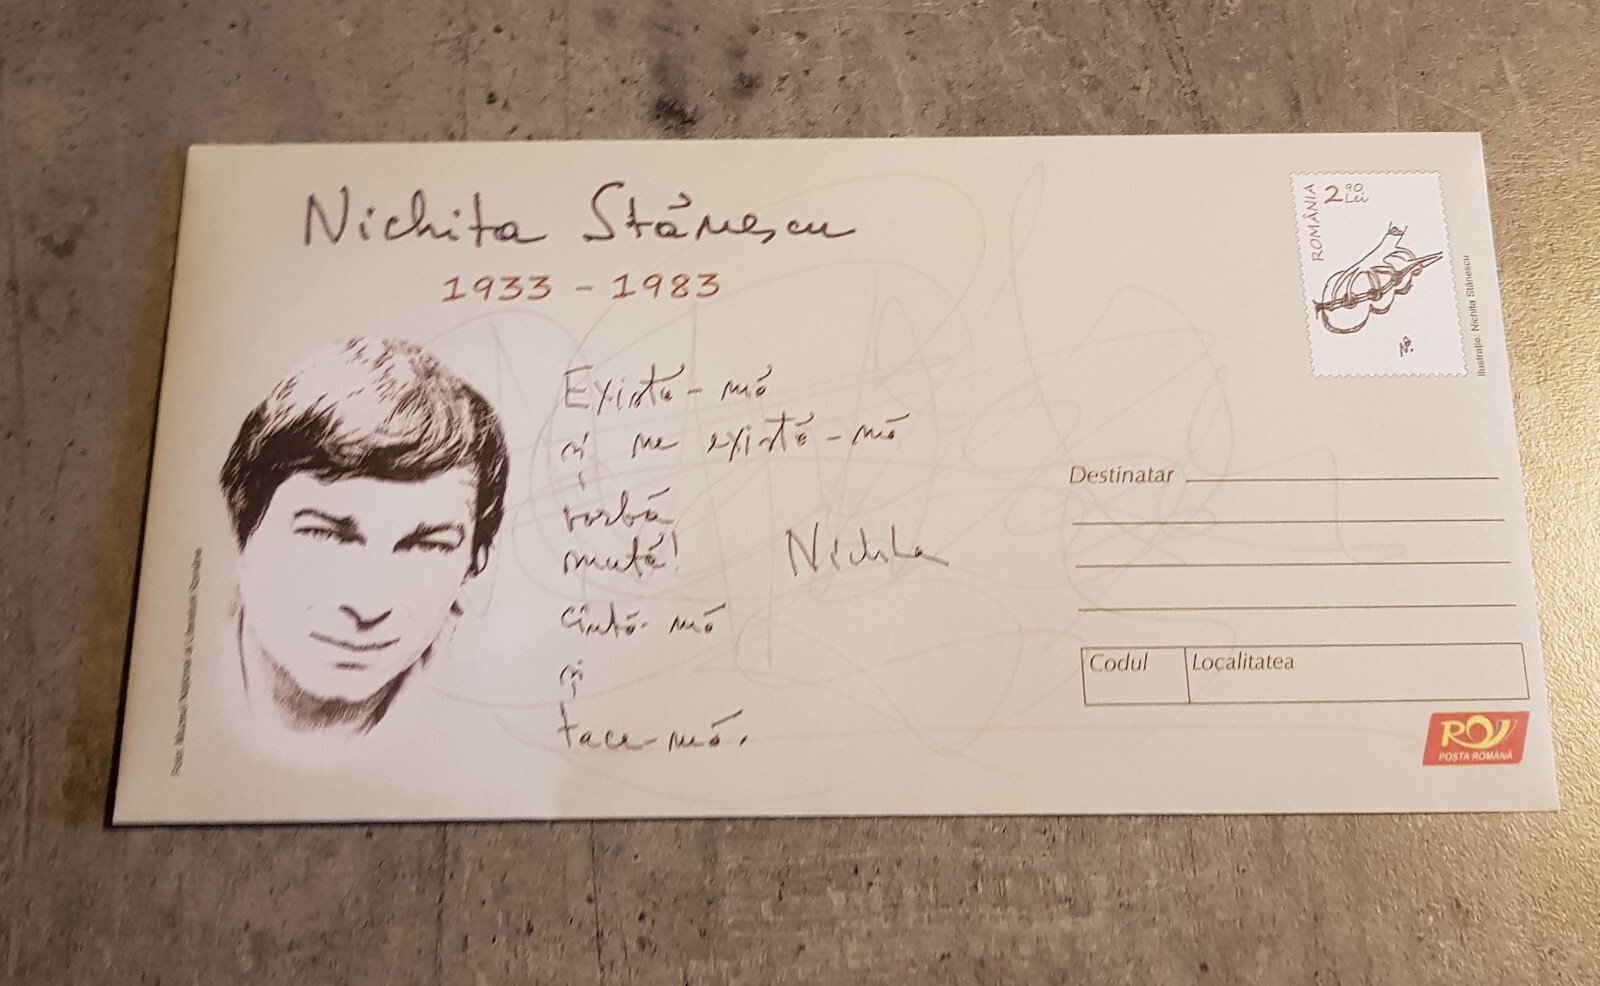 Nichita Stănescu
1933 - 1983
Există-mă
și ne există-mă
vorbă
mută!
Nichita
Cîntă-mă
și
tace-mă.
ROMÂNIA
2 90 Lei
N?
Ilustrație: Nichita Stănescu
Foto: Muzeul Național al Literaturii Române
Destinatar
Codul
Localitatea
POȘTA ROMÂNĂ